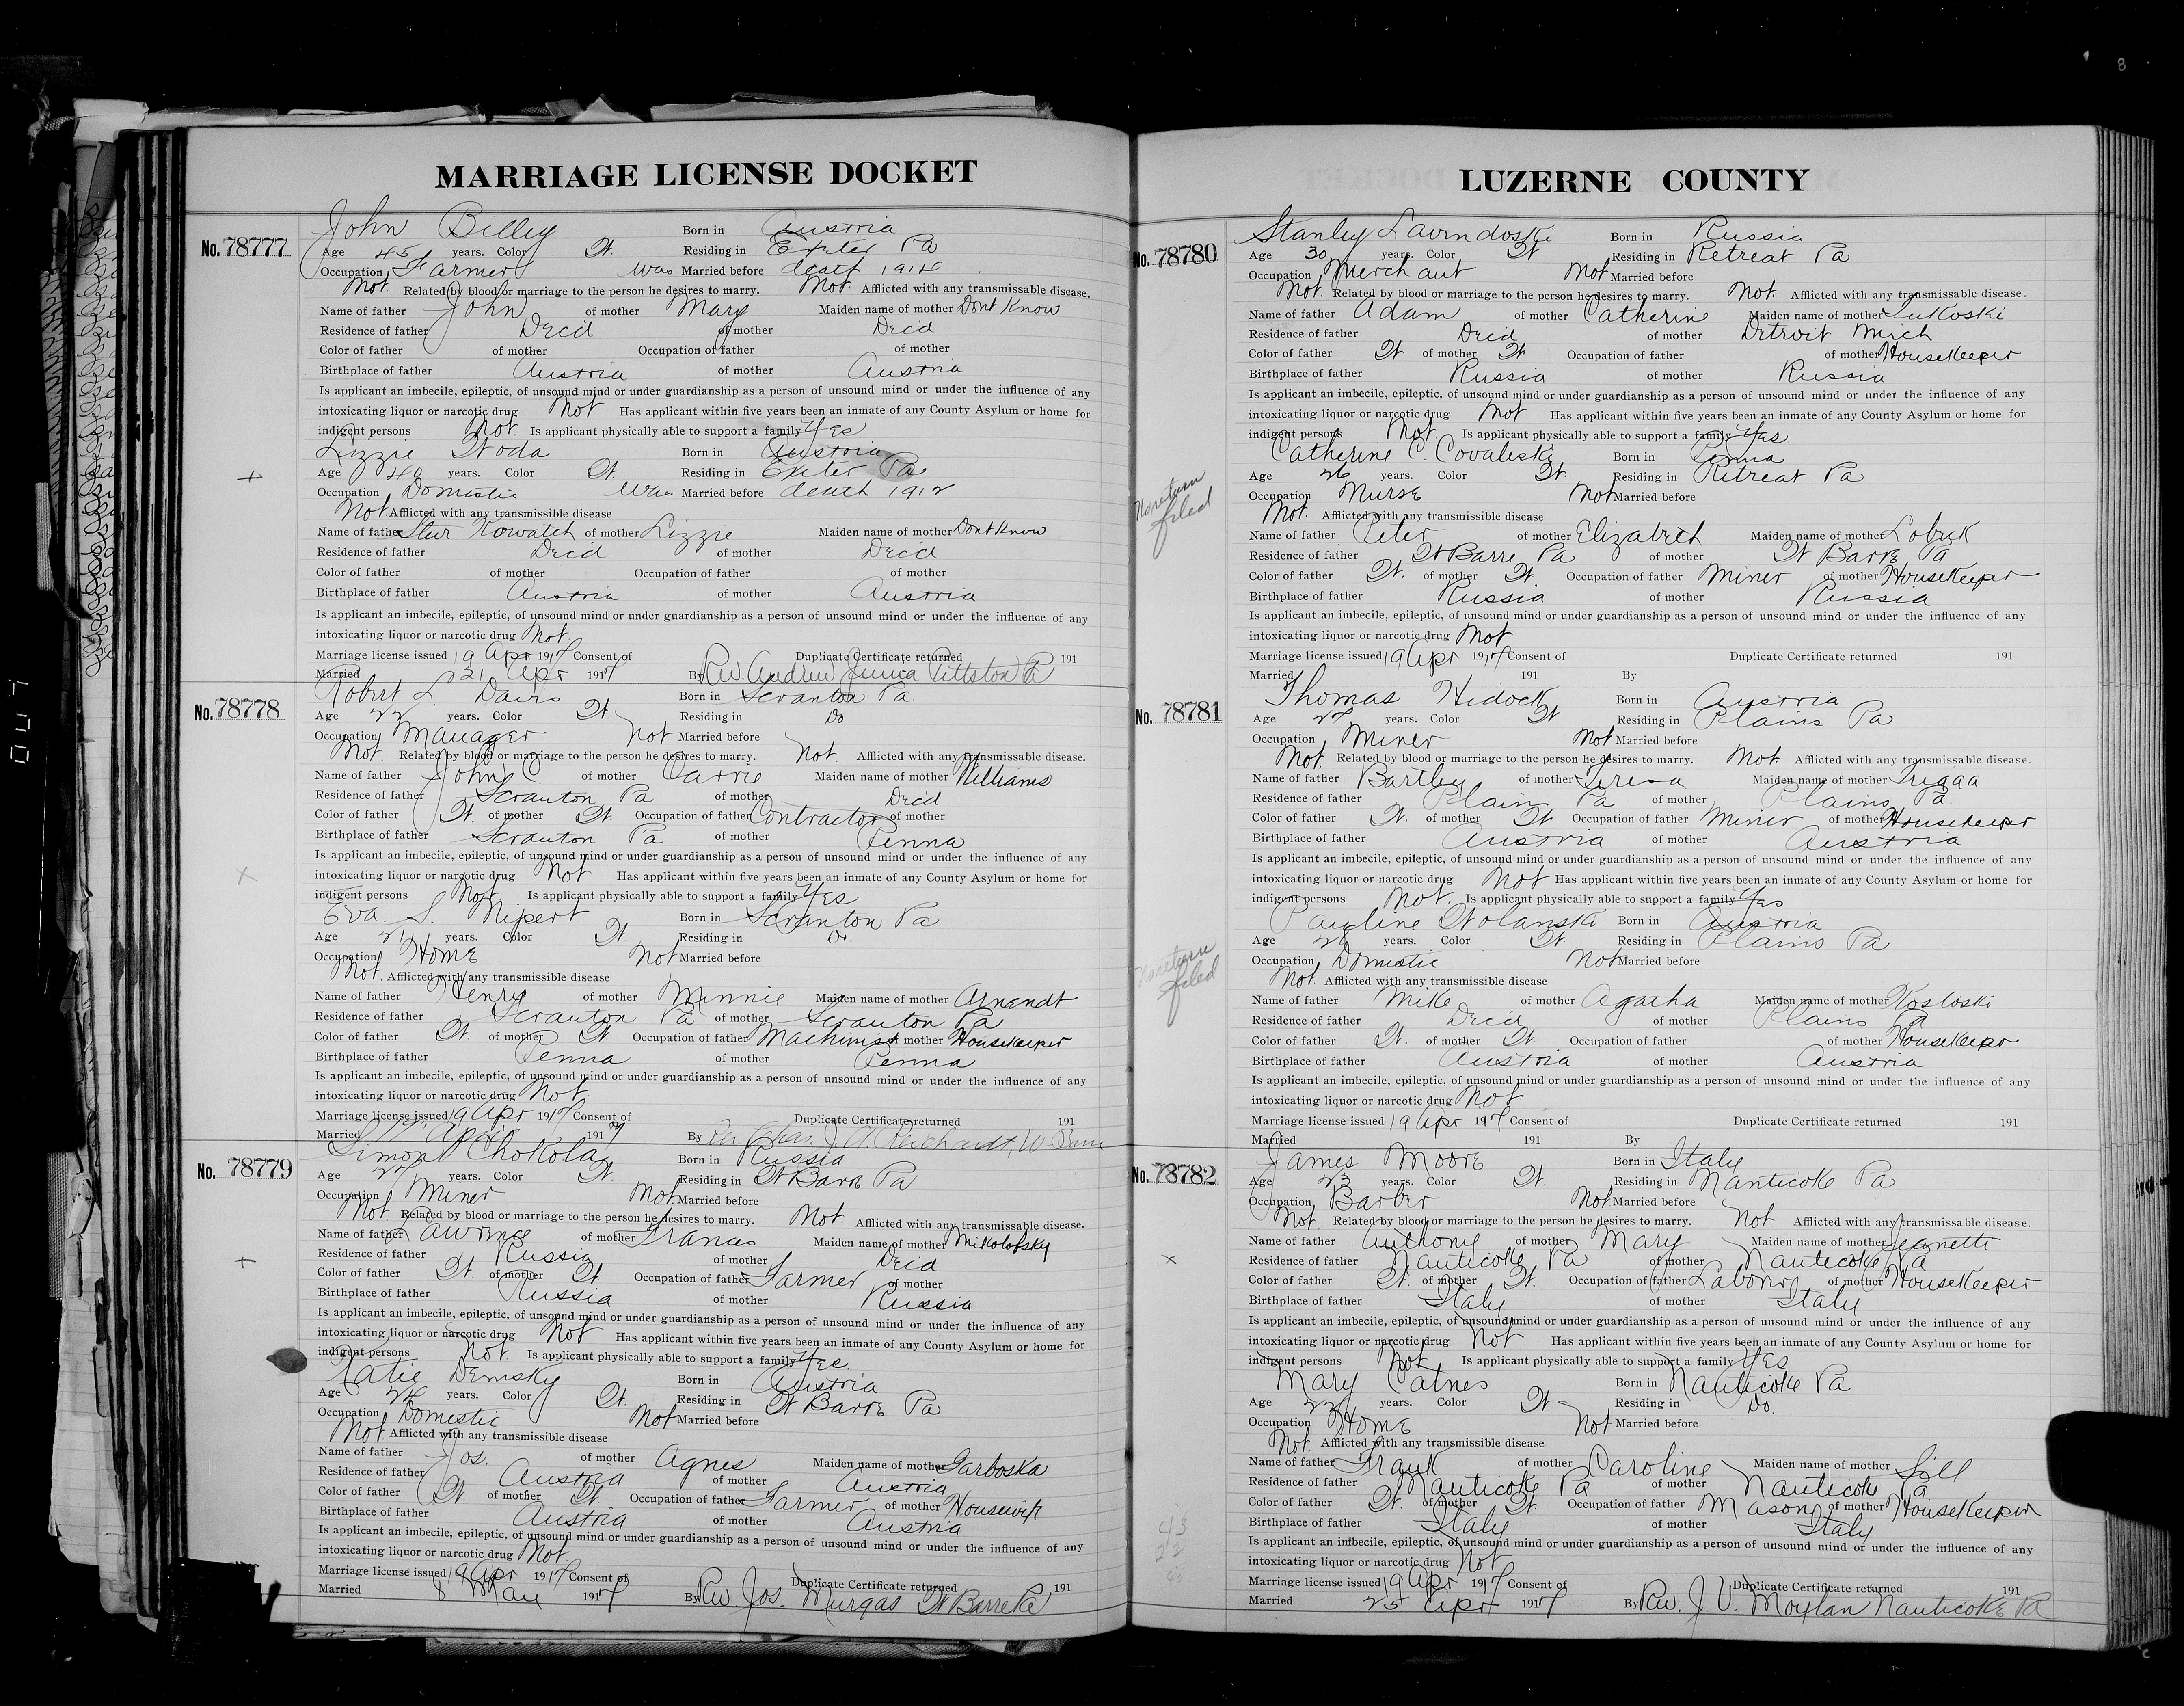 MARRIAGE LICENSE DOCKET
No. 78777
John Billey Born in Austria
Age 45 years. Color W. Residing in Exeter Pa
Occupation Farmer Was Married before death 1914
Not Related by blood or marriage to the person he desires to marry. Not Afflicted with any transmissable disease.
Name of father John of mother Mary Maiden name of mother Dont Know
Residence of father Decd of mother Decd
Color of father of mother Occupation of father of mother
Birthplace of father Austria of mother Austria
Is applicant an imbecile, epileptic, of unsound mind or under guardianship as a person of unsound mind or under the influence of any
intoxicating liquor or narcotic drug Not Has applicant within five years been an inmate of any County Asylum or home for
indigent persons Not. Is applicant physically able to support a family Yes
Lizzie Woda Born in Austria
Age 40 years. Color W. Residing in Exeter Pa
Occupation Domestic Was Married before death 1912
Not Afflicted with any transmissible disease
Name of father Kowatch of mother Lizzie Maiden name of mother Dont Know
Residence of father Decd of mother Decd
Color of father of mother Occupation of father of mother
Birthplace of father Austria of mother Austria
Is applicant an imbecile, epileptic, of unsound mind or under guardianship as a person of unsound mind or under the influence of any
intoxicating liquor or narcotic drug Not
Marriage license issued 19 Apr 1917 Consent of Duplicate Certificate returned 191
Married 21 Apr 1917 By Rev. Andrew Pittston Pa
No. 78778
Robert L. Davis Born in Scranton Pa.
Age 22 years. Color W. Residing in Do
Occupation Manager Not Married before
Not. Related by blood or marriage to the person he desires to marry. Not. Afflicted with any transmissable disease.
Name of father John C of mother Carrie Maiden name of mother Williams
Residence of father Scranton Pa of mother Decd
Color of father W. of mother W. Occupation of father Contractor of mother
Birthplace of father Scranton Pa of mother Penna
Is applicant an imbecile, epileptic, of unsound mind or under guardianship as a person of unsound mind or under the influence of any
intoxicating liquor or narcotic drug Not Has applicant within five years been an inmate of any County Asylum or home for
indigent persons Not. Is applicant physically able to support a family Yes
Eva. S. Nipert Born in Scranton Pa
Age 21 years. Color W. Residing in Do.
Occupation Home Not Married before
Not. Afflicted with any transmissible disease
Name of father Henry of mother Minnie Maiden name of mother Arnandt
Residence of father Scranton Pa of mother Scranton Pa
Color of father W. of mother W. Occupation of father Machinist of mother Housekeeper
Birthplace of father Penna of mother Penna
Is applicant an imbecile, epileptic, of unsound mind or under guardianship as a person of unsound mind or under the influence of any
intoxicating liquor or narcotic drug Not.
Marriage license issued 19 Apr 1917 Consent of Duplicate Certificate returned 191
Married April 1917 By Rev Chas. J. W. Barre
No. 78779
Simon Chokola Born in Russia
Age 27 years. Color W. Residing in W Barre Pa
Occupation Miner Not Married before
Not. Related by blood or marriage to the person he desires to marry. Not. Afflicted with any transmissable disease.
Name of father Lawrence of mother Frances Maiden name of mother Mikolofsky
Residence of father Russia of mother Decd
Color of father W. of mother W. Occupation of father Farmer of mother
Birthplace of father Russia of mother Russia
Is applicant an imbecile, epileptic, of unsound mind or under guardianship as a person of unsound mind or under the influence of any
intoxicating liquor or narcotic drug Not Has applicant within five years been an inmate of any County Asylum or home for
indigent persons Not. Is applicant physically able to support a family Yes.
Katie Demsky Born in Austria
Age 24 years. Color W. Residing in W Barre Pa
Occupation Domestic Not Married before
Not Afflicted with any transmissible disease
Name of father Jos. of mother Agnes Maiden name of mother Garboska
Residence of father Austria of mother Austria
Color of father W. of mother W. Occupation of father Farmer of mother Housewife
Birthplace of father Austria of mother Austria
Is applicant an imbecile, epileptic, of unsound mind or under guardianship as a person of unsound mind or under the influence of any
intoxicating liquor or narcotic drug Not.
Marriage license issued 19 Apr 1917 Consent of Duplicate Certificate returned 191
Married 8 May 1917 By Rev. Jos. Murgas W Barre Pa
LUZERNE COUNTY
No. 78780
Stanley Lavindoski Born in Russia
Age 30 years. Color W Residing in Retreat Pa
Occupation Merchant Not Married before
Not. Related by blood or marriage to the person he desires to marry. Not. Afflicted with any transmissable disease.
Name of father Adam of mother Catherine Maiden name of mother Lukoski
Residence of father Decd of mother Detroit Mich
Color of father W of mother W Occupation of father of mother Housekeeper
Birthplace of father Russia of mother Russia
Is applicant an imbecile, epileptic, of unsound mind or under guardianship as a person of unsound mind or under the influence of any
intoxicating liquor or narcotic drug Not Has applicant within five years been an inmate of any County Asylum or home for
indigent persons Not Is applicant physically able to support a family Yes
Catherine C. Covaleski Born in Penna
Age 26 years. Color W. Residing in Retreat Pa
No return filed
Occupation Nurse Not Married before
Not. Afflicted with any transmissible disease
Name of father Peter of mother Elizabeth Maiden name of mother Lobick
Residence of father W Barre Pa of mother W Barre Pa
Color of father W. of mother W. Occupation of father Miner of mother Housekeeper
Birthplace of father Russia of mother Russia
Is applicant an imbecile, epileptic, of unsound mind or under guardianship as a person of unsound mind or under the influence of any
intoxicating liquor or narcotic drug Not
Marriage license issued 19 Apr 1917 Consent of Duplicate Certificate returned 191
Married 191 By
No. 78781
Thomas Hidock Born in Austria
Age 27 years. Color W Residing in Plains Pa
Occupation Miner Not Married before
Not. Related by blood or marriage to the person he desires to marry. Not Afflicted with any transmissable disease.
Name of father Bartley of mother Teresa Maiden name of mother
Residence of father Plains Pa of mother Plains Pa.
Color of father W. of mother W Occupation of father Miner of mother Housekeeper
Birthplace of father Austria of mother Austria
Is applicant an imbecile, epileptic, of unsound mind or under guardianship as a person of unsound mind or under the influence of any
intoxicating liquor or narcotic drug Not Has applicant within five years been an inmate of any County Asylum or home for
indigent persons Not. Is applicant physically able to support a family Yes
Pauline Wolanski Born in Austria
Age 26 years. Color W. Residing in Plains Pa
No return filed
Occupation Domestic Not Married before
Not. Afflicted with any transmissible disease
Name of father Mike of mother Agatha Maiden name of mother Kosloski
Residence of father Decd of mother Plains Pa
Color of father W. of mother W. Occupation of father of mother Housekeeper
Birthplace of father Austria of mother Austria
Is applicant an imbecile, epileptic, of unsound mind or under guardianship as a person of unsound mind or under the influence of any
intoxicating liquor or narcotic drug Not
Marriage license issued 19 Apr 1917 Consent of Duplicate Certificate returned 191
Married 191 By
No. 78782
James Moore Born in Italy
Age 23 years. Color W. Residing in Nanticoke Pa
Occupation Barber Not Married before
Not. Related by blood or marriage to the person he desires to marry. Not Afflicted with any transmissable disease.
Name of father Anthony of mother Mary Maiden name of mother Jeanette
Residence of father Nanticoke Pa of mother Nanticoke Pa
Color of father W. of mother W. Occupation of father Laborer of mother Housekeeper
Birthplace of father Italy of mother Italy
Is applicant an imbecile, epileptic, of unsound mind or under guardianship as a person of unsound mind or under the influence of any
intoxicating liquor or narcotic drug Not Has applicant within five years been an inmate of any County Asylum or home for
indigent persons Not Is applicant physically able to support a family Yes
Mary Catnes Born in Nanticoke Pa
Age 22 years. Color W Residing in Do.
Occupation Home Not Married before
Not. Afflicted with any transmissible disease
Name of father Frank of mother Caroline Maiden name of mother Lill
Residence of father Nanticoke Pa of mother Nanticoke Pa
Color of father W. of mother W. Occupation of father Mason of mother Housekeeper
Birthplace of father Italy of mother Italy
Is applicant an imbecile, epileptic, of unsound mind or under guardianship as a person of unsound mind or under the influence of any
intoxicating liquor or narcotic drug Not
Marriage license issued 19 Apr 1917 Consent of Duplicate Certificate returned 191
Married 25 Apr 1917 By Rev. J. V. Moylan Nanticoke Pa